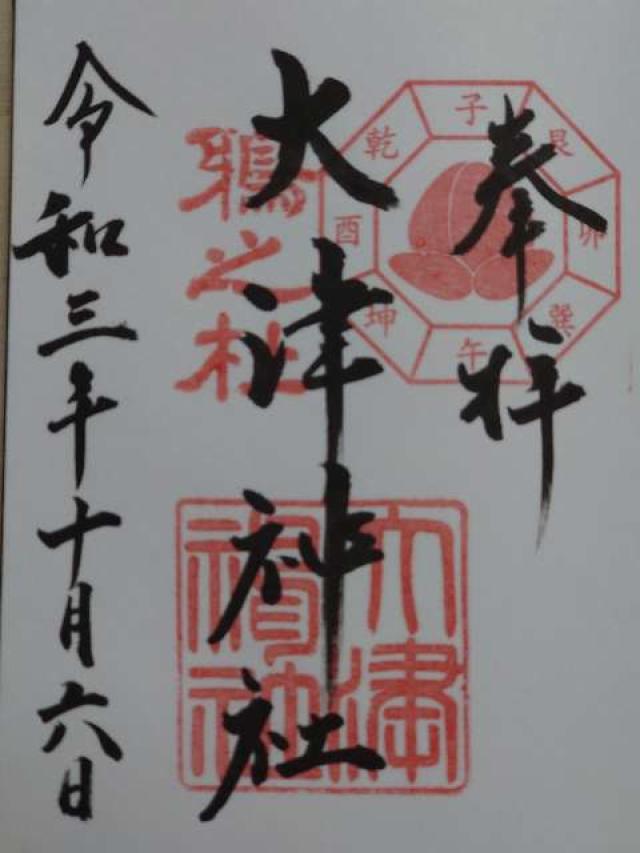 奉拝
子
艮
卯
巽
午
坤
酉
乾
大津神社
之杜
大津
神社
令和三年十月六日